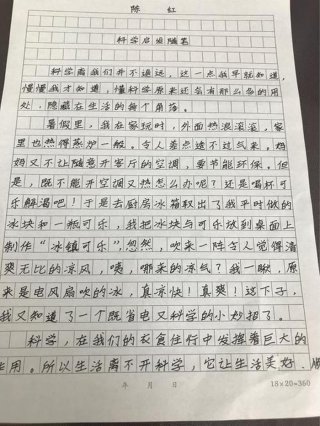 陈 红
科学启发随笔
科学离我们并不遥远，这一点我早就知道，
慢慢我才知道，懂科学原来还有那么多的用
处，隐藏在生活的每个角落。
暑假里，我在家玩时，外面热浪滚滚，家
里也热得蒸炉一般。令人差点透不过气来，妈
妈又不让随意开客厅的空调，要节能环保。但
是，既不能开空调又热怎么办呢？还是喝杯可
乐解渴吧！于是去厨房冰箱取出了我平时做的
冰块和一瓶可乐，我把冰块与可乐放到桌面上
制作“冰镇可乐”，忽然，吹来一阵令人觉得清
爽无比的凉风，咦，哪来的凉气？我一瞅，原
来是电风扇吹的冰，真凉快！真爽！这下子，
我又知道了一个既省电又科学的小妙招了。
科学，在我们的衣食住行中发挥着巨大的
作用。所以生活离不开科学，它让生活美好、
年 月 日
18×20=360